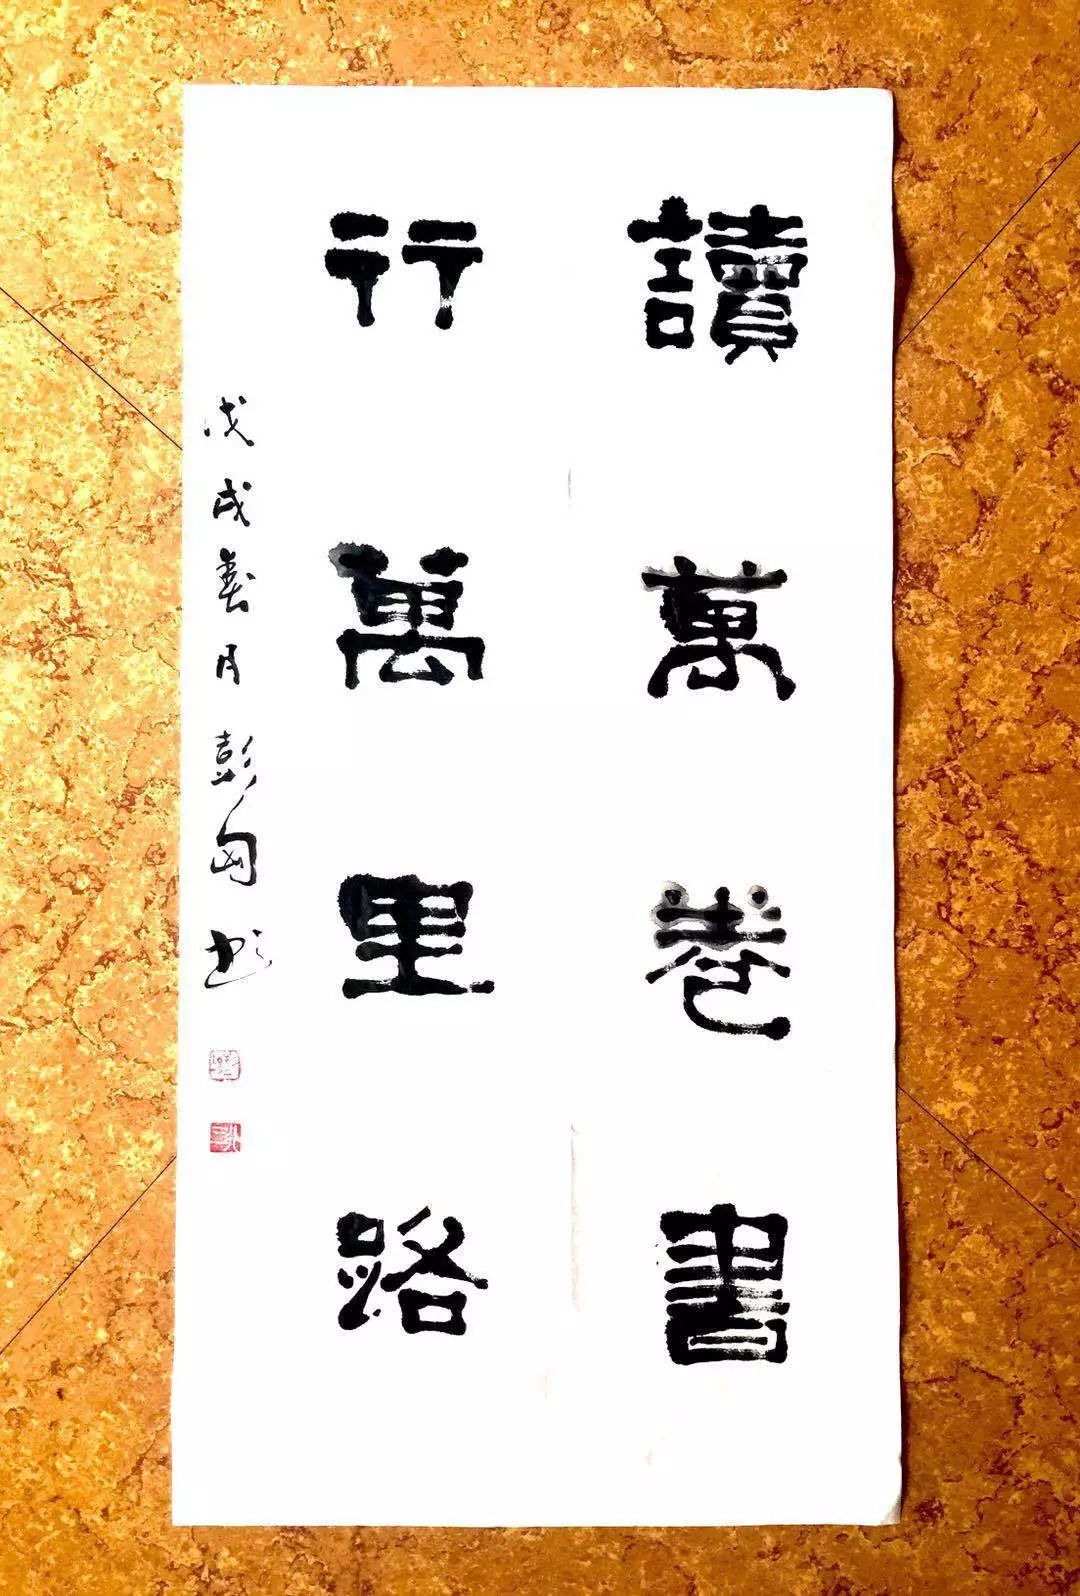 讀萬卷書
行萬里路
戊戌春月彭匈书